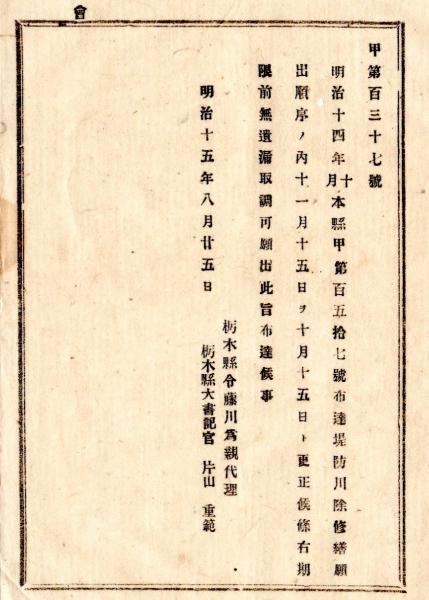 會
甲第百三十七號
明治十四年十月本縣甲第百五拾七號布達堤防川除修繕願
出順序ノ內十一月十五日ヲ十月十五日ト更正候條右期
限前無遺漏取調可願出此旨布達候事
明治十五年八月廿五日
栃木縣令藤川爲親代理
栃木縣大書記官 片山 重範